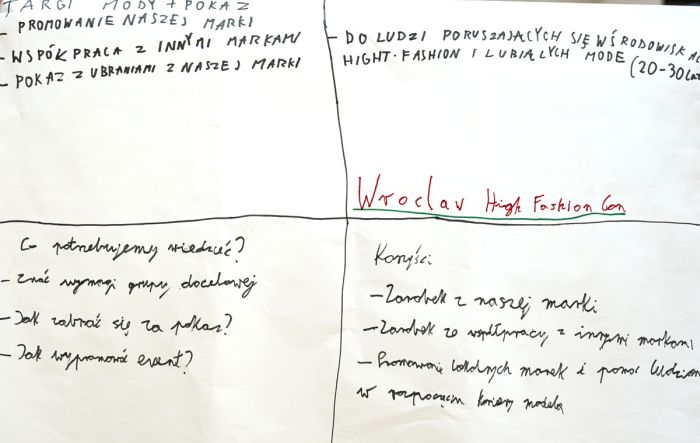 TARGI MODY + POKAZ
- PROMOWANIE NASZEJ MARKI
- WSPÓŁPRACA Z INNYMI MARKAMI
- POKAZ Z UBRANIAMI Z NASZEJ MARKI
- DO LUDZI PORUSZAJĄCYCH SIĘ W ŚRODOWISKACH
HIGHT-FASHION I LUBIĄCYCH MODE (20-30 lat
Wroclav High Fashion Con
Co potrzebujemy wiedzieć?
- Znać wymogi grupy docelowej
- Jak zabrać się za pokaz?
- Jak wypromować event?
Korzyści:
- Zarobek z naszej marki
- Zarobek ze współpracy z innymi markami
- Promowanie lokalnych marek i pomoc ludziom
w rozpoczęciu kariery modela